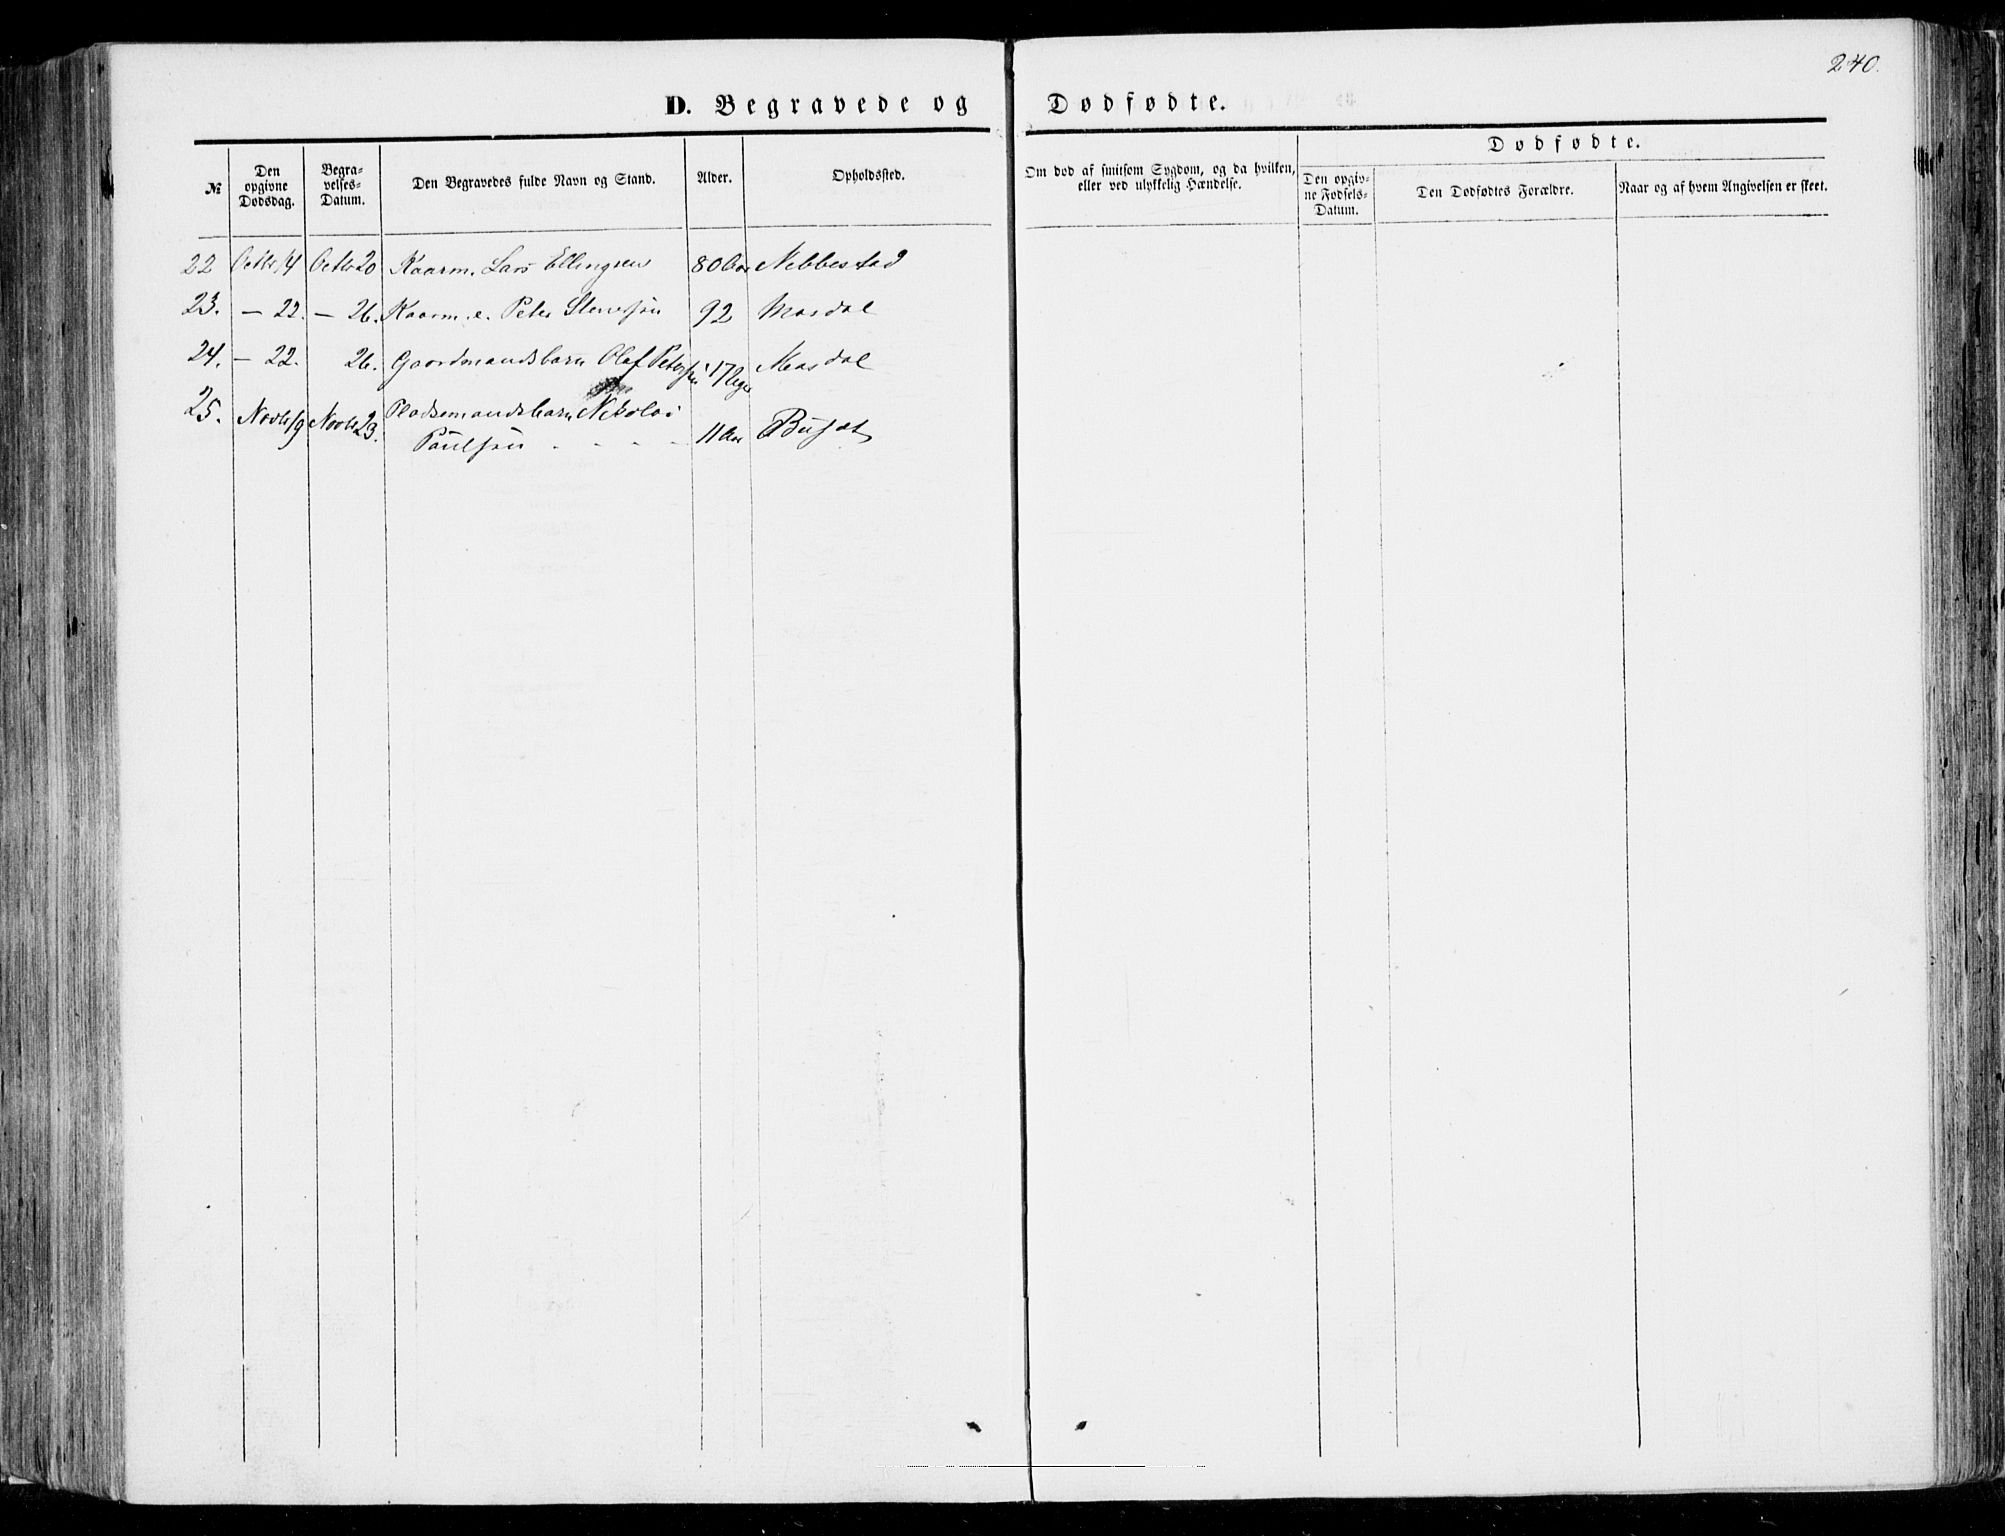 240.
D. Begravede og Dødfødte.
№
Den opgivne Dødsdag.
Begravelses-Datum.
Den Begravedes fulde Navn og Stand.
Alder.
Opholdssted.
Om død af smitsom Sygdom, og da hvilken, eller ved ulykkelig Hændelse.
Dødfødte.
Den opgivne Fødsels-Datum.
Den Dødfødtes Forældre.
Naar og af hvem Angivelsen er skeet.
22 Octbr 14 Octbr 20 Kaarm. Lars Ellingsen 80 Aar Nebbestad
23. — 22. — 26. Kaarm. e. Peter Stenersøn 92 Masdal
24. — 22. 26. Gaardmandsbarn Olaf Petersøn 17 Uger Masdal
25. Novbr 19 Novbr 23. Pladsemandsbarn Nikolai
Paulsøn - - - - 11 Aar Busæt